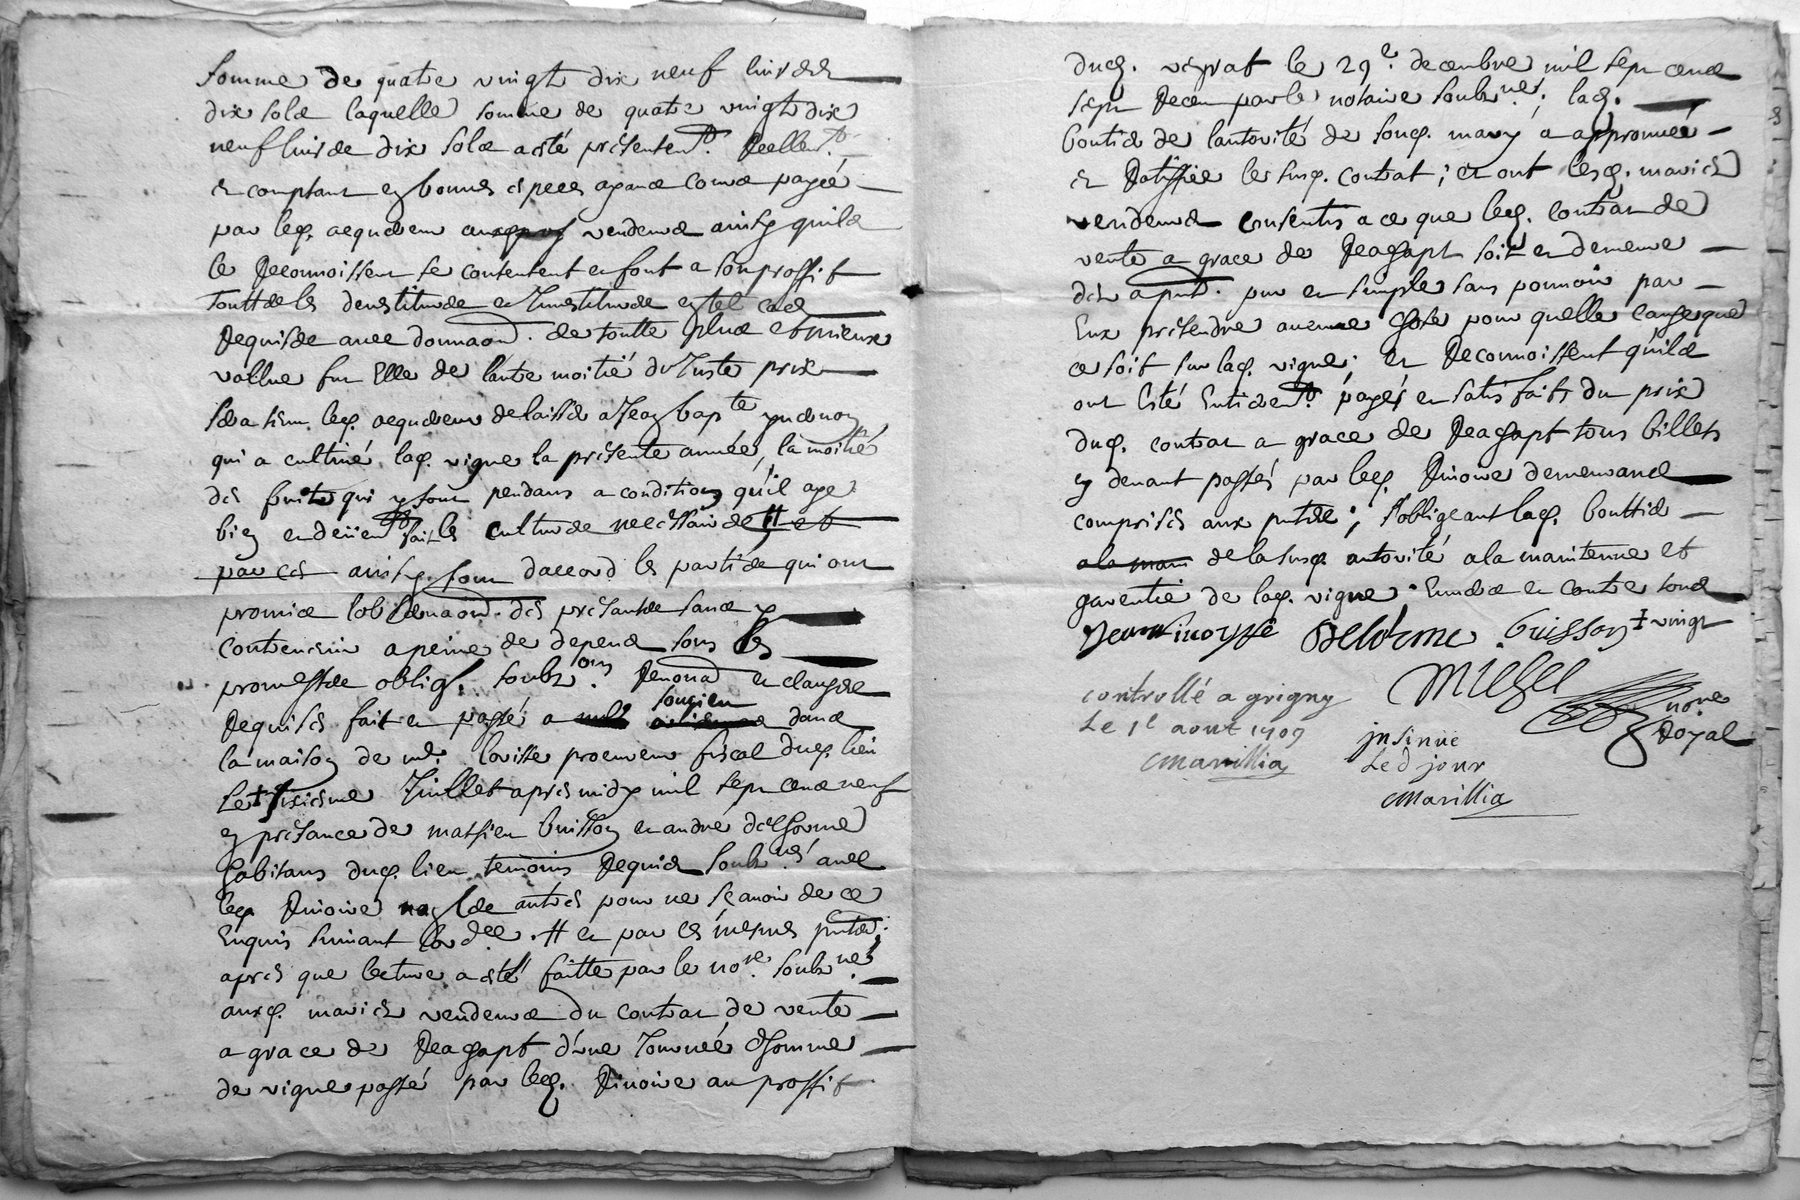 somme de quatre vingt dix neuf livres
dix sols laquelle somme de quatre vingt dix
neuf livres dix sols a esté présentemt. Reellemt.
et comptant en bonnes especes ayans cours payée
par led. acquereur vendeurs ainsy quils
le Reconnoissent se contentent en font a son proffit
touttes les devestitures et Investitures en tel cas
Requises avec donnaon. de toutte plus et mieux
vallue fut Elle de lautre moitié du Juste prix
led. acquereur delaisse a Jean bapte
qui a cultivé lad. vigne la présente année, la moitié
des fruits qui y sont pendans a condition qu'il aye
bien et deüemt fait les cultures necessaires # et
par ces ainsy sont daccord les parties qui ont
promis lobservaon. des présantes sans y
contrevenir a peine de depens sous les
promesses obligs. soubson. Renonon et clauses
Requises fait et passé a sougieu dans
la maison de mr. lovisse procureur fiscal dud. lieu
Le troisieme Juillet apres midy mil sept cens neuf
en présance de mathieu buisson et andré delhorme
habitans dud. lieu temoins Requis soubsnés avec
led. Rivoire non les autres pour ne sçavoir de ce
Enquis suivant lordce. # et par ces mesmes pntes.
apres que lecture a esté faitte par le nore. soubsné.
auxd. mariés vendeurs du contrat de vente
a grace de Reachapt d'une Journée d'homme
de vigne passé par led. Rivoire au proffit
dud. veyrat le 29e. decembre mil sept cens
sept Receu par le notaire soubsné; lad.
boutié de lautorité de sond. mary a approuvée
et Ratiffié le susd. contrat; et ont lesd. mariés
vendeurs consentis a ce que led. contrat de
vente a grace de Reachapt soit et demeure
des a pnt. pur et simple sans pouvoir par
Eux prétendre aucune chose pour quelle cause que
ce soit sur lad. vigne; et Reconnoissent quils
ont Esté Entieremt. payés et satisfaits du prix
dud. contrat a grace de Reachapt tous billets
cy devant passés par led. Rivoire demeurans
compris es aux pntes; s'obligeant lad. bouttié
a la main de la susd. autorité a la maintenue et
garentie de lad. vigne. Envers et contre tous
Jean Rivoyre Delorme. buisson ‡ vingt
Michel
nore
Royal
controllé a grigny
Le 1e aout 1709
Marillia
insinué
Led jour
Marillia